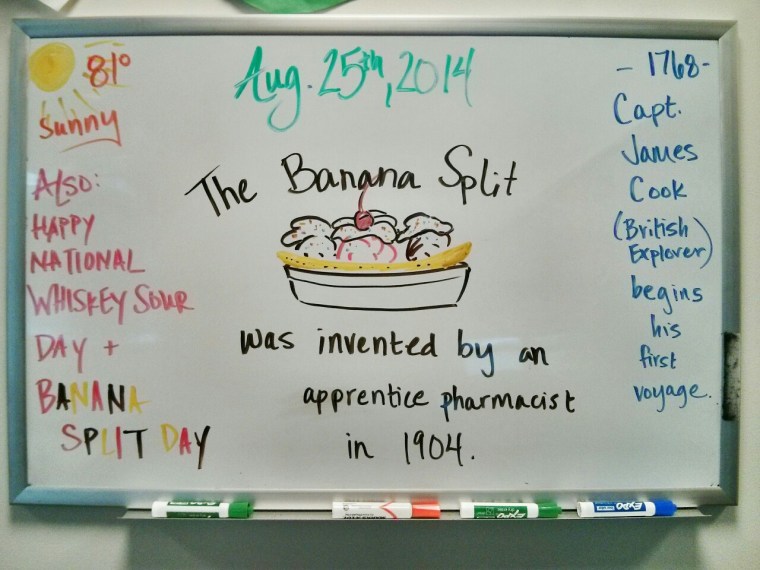 81°
Sunny
Also:
HAPPY
NATIONAL
WHISKEY SOUR
DAY +
BANANA
SPLIT DAY
Aug. 25th, 2014
The Banana Split
was invented by an
apprentice pharmacist
in 1904.
- 1768-
Capt.
James
Cook
(British
Explorer)
begins
his
first
voyage.
EXPO
EXPO